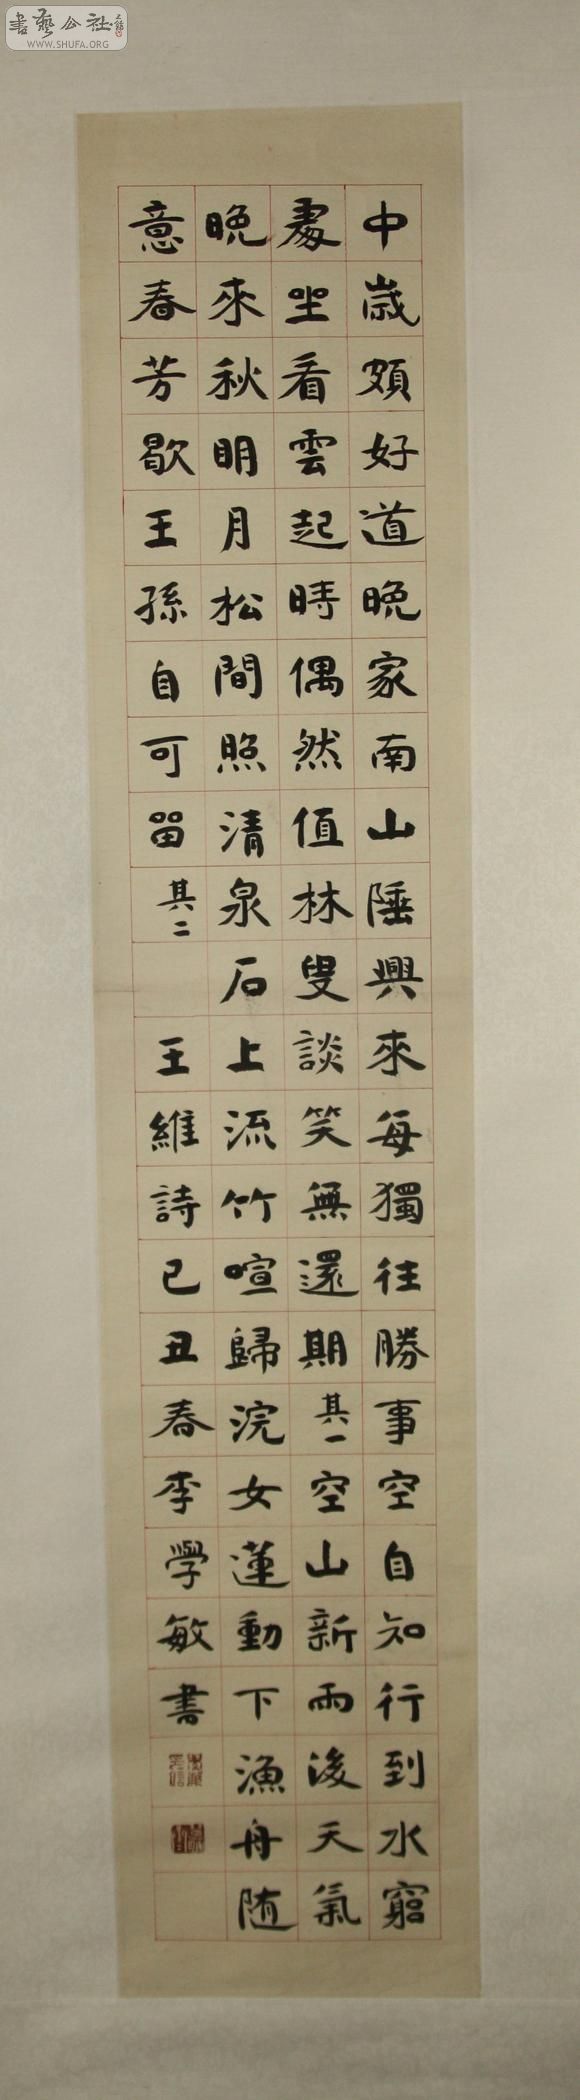 中歳頗好道晚家南山陲興來每獨往勝事空自知行到水窮
處坐看雲起時偶然值林叟談笑無還期其一空山新雨後天氣
晚來秋明月松間照清泉石上流竹喧歸浣女蓮動下漁舟随
意春芳歇王孫自可留其二
王維詩己丑春李學敏書
書藝公社
WWW.SHUFA.ORG